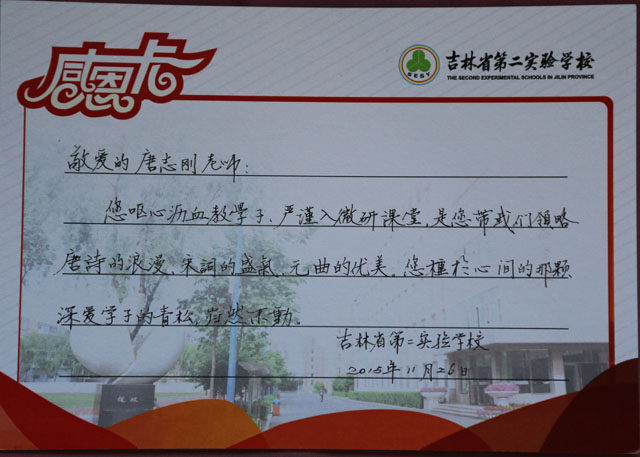 感恩卡
吉林省第二实验学校
THE SECOND EXPERIMENTAL SCHOOLS IN JILIN PROVINCE
敬爱的唐志刚老师：
您呕心沥血教學子、严谨入微研课堂，是您带我们領略
唐詩的浪漫、宋詞的盛氣、元曲的优美。您植於心间的那颗
深爱学子的青松，岿然不動。
吉林省第二实验学校
2015年11月26日